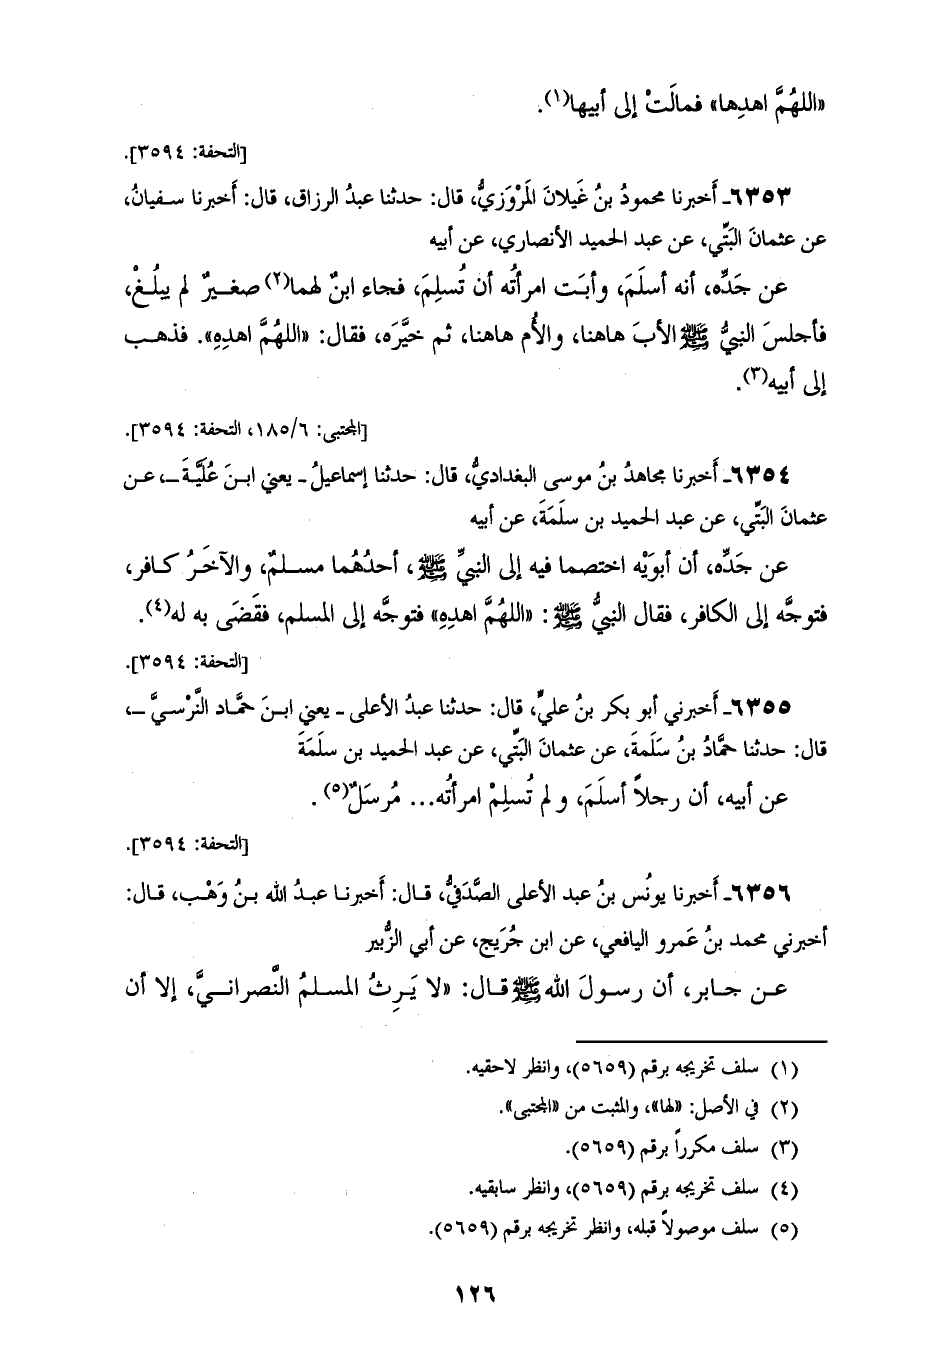 «اللهُمَّ اهدِها» فمالَتْ إلى أبيها(١).
[التحفة: ٣٥٩٤].
٦٣٥٣ـ أخبرنا محمودُ بنُ غَيلانَ المَرْوَزيُّ، قال: حدثنا عبدُ الرزاق، قال: أخبرنا سفيانُ،
عن عثمانَ البَتِّي، عن عبد الحميد الأنصاري، عن أبيه
عن جَدِّه، أنه أسلَمَ، وأبَت امرأتُه أن تُسلِمَ، فجاء ابنٌ لهما(٢) صغيرٌ لم يبلُغْ،
فأجلسَ النبيُّ ﷺ الأبَ هاهنا، والأُم هاهنا، ثم خيَّرَه، فقال: «اللهُمَّ اهدِهِ». فذهب
إلى أبيه(٣).
[المجتبى: ١٨٥/٦، التحفة: ٣٥٩٤].
٦٣٥٤ـ أخبرنا مجاهدُ بنُ موسى البغداديُّ، قال: حدثنا إسماعيلُ ـ يعني ابنَ عُلَيَّةَ ـ، عن
عثمانَ البَتِّي، عن عبد الحميد بن سلَمَةَ، عن أبيه
عن جَدِّه، أن أبوَيْه اختصما فيه إلى النبيِّ ﷺ، أحدُهُما مسلمٌ، والآخَرُ كافر،
فتوجَّه إلى الكافر، فقال النبيُّ ﷺ: «اللهُمَّ اهدِهِ» فتوجَّه إلى المسلم، فقَضَى به له(٤).
[التحفة: ٣٥٩٤].
٦٣٥٥ـ أخبرني أبو بكر بنُ عليٍّ، قال: حدثنا عبدُ الأعلى ـ يعني ابنَ حمَّاد النَّرْسيَّ ـ،
قال: حدثنا حمَّادُ بنُ سَلَمةَ، عن عثمانَ البَتِّي، عن عبد الحميد بن سلَمَةَ
عن أبيه، أن رجلاً أسلَمَ، و لم تُسلِمْ امرأتُه... مُرسَلٌ(٥).
[التحفة: ٣٥٩٤].
٦٣٥٦ـ أخبرنا يونُس بنُ عبد الأعلى الصَّدَفيُّ، قال: أخبرنا عبدُ الله بنُ وَهْب، قال:
أخبرني محمد بنُ عَمرو اليافعي، عن ابن جُرَيج، عن أبي الزُّبير
عن جابر، أن رسولَ الله ﷺ قال: «لا يَرِثُ المسلمُ النَّصرانيَّ، إلا أن
(١) سلف تخريجه برقم (٥٦٥٩)، وانظر لاحقيه.
(٢) في الأصل: «لها»، والمثبت من «المجتبى».
(٣) سلف مكرراً برقم (٥٦٥٩).
(٤) سلف تخريجه برقم (٥٦٥٩)، وانظر سابقيه.
(٥) سلف موصولاً قبله، وانظر تخريجه برقم (٥٦٥٩).
١٢٦